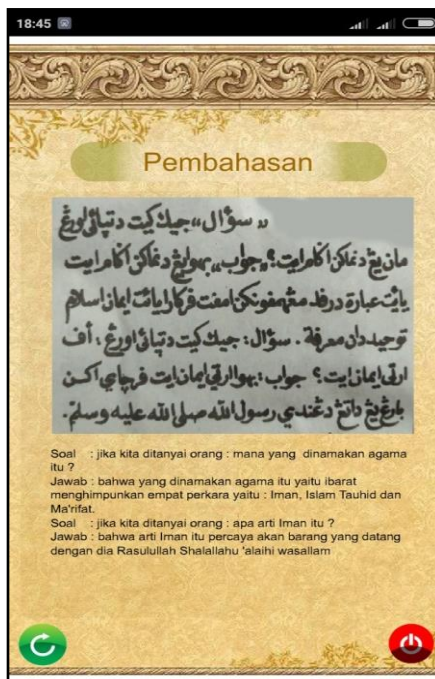 18:45
Pembahasan
„ سؤال „ جيك كيت دتپائي اورڠ
مان يڠ دنماکن اڬام ايت؟ „ جواب „ بهوا يڠ دنماکن اڬام ايت
يائت عبارة درفد مڠهمفونکن امفت فرکارا يائت ايمان اسلام
توحيد دان معرفة . سؤال : جيك كيت دتپائي اورڠ : أف
ارتي ايمان ايت ؟ جواب : بهوا ارتي ايمان ايت فرچاي اکن
بارڠ يڠ داتڠ دڠندي رسول الله صلى الله عليه وسلم .
Soal : jika kita ditanyai orang : mana yang dinamakan agama
itu ?
Jawab : bahwa yang dinamakan agama itu yaitu ibarat
menghimpunkan empat perkara yaitu : Iman, Islam Tauhid dan
Ma'rifat.
Soal : jika kita ditanyai orang : apa arti Iman itu ?
Jawab : bahwa arti Iman itu percaya akan barang yang datang
dengan dia Rasulullah Shalallahu 'alaihi wasallam